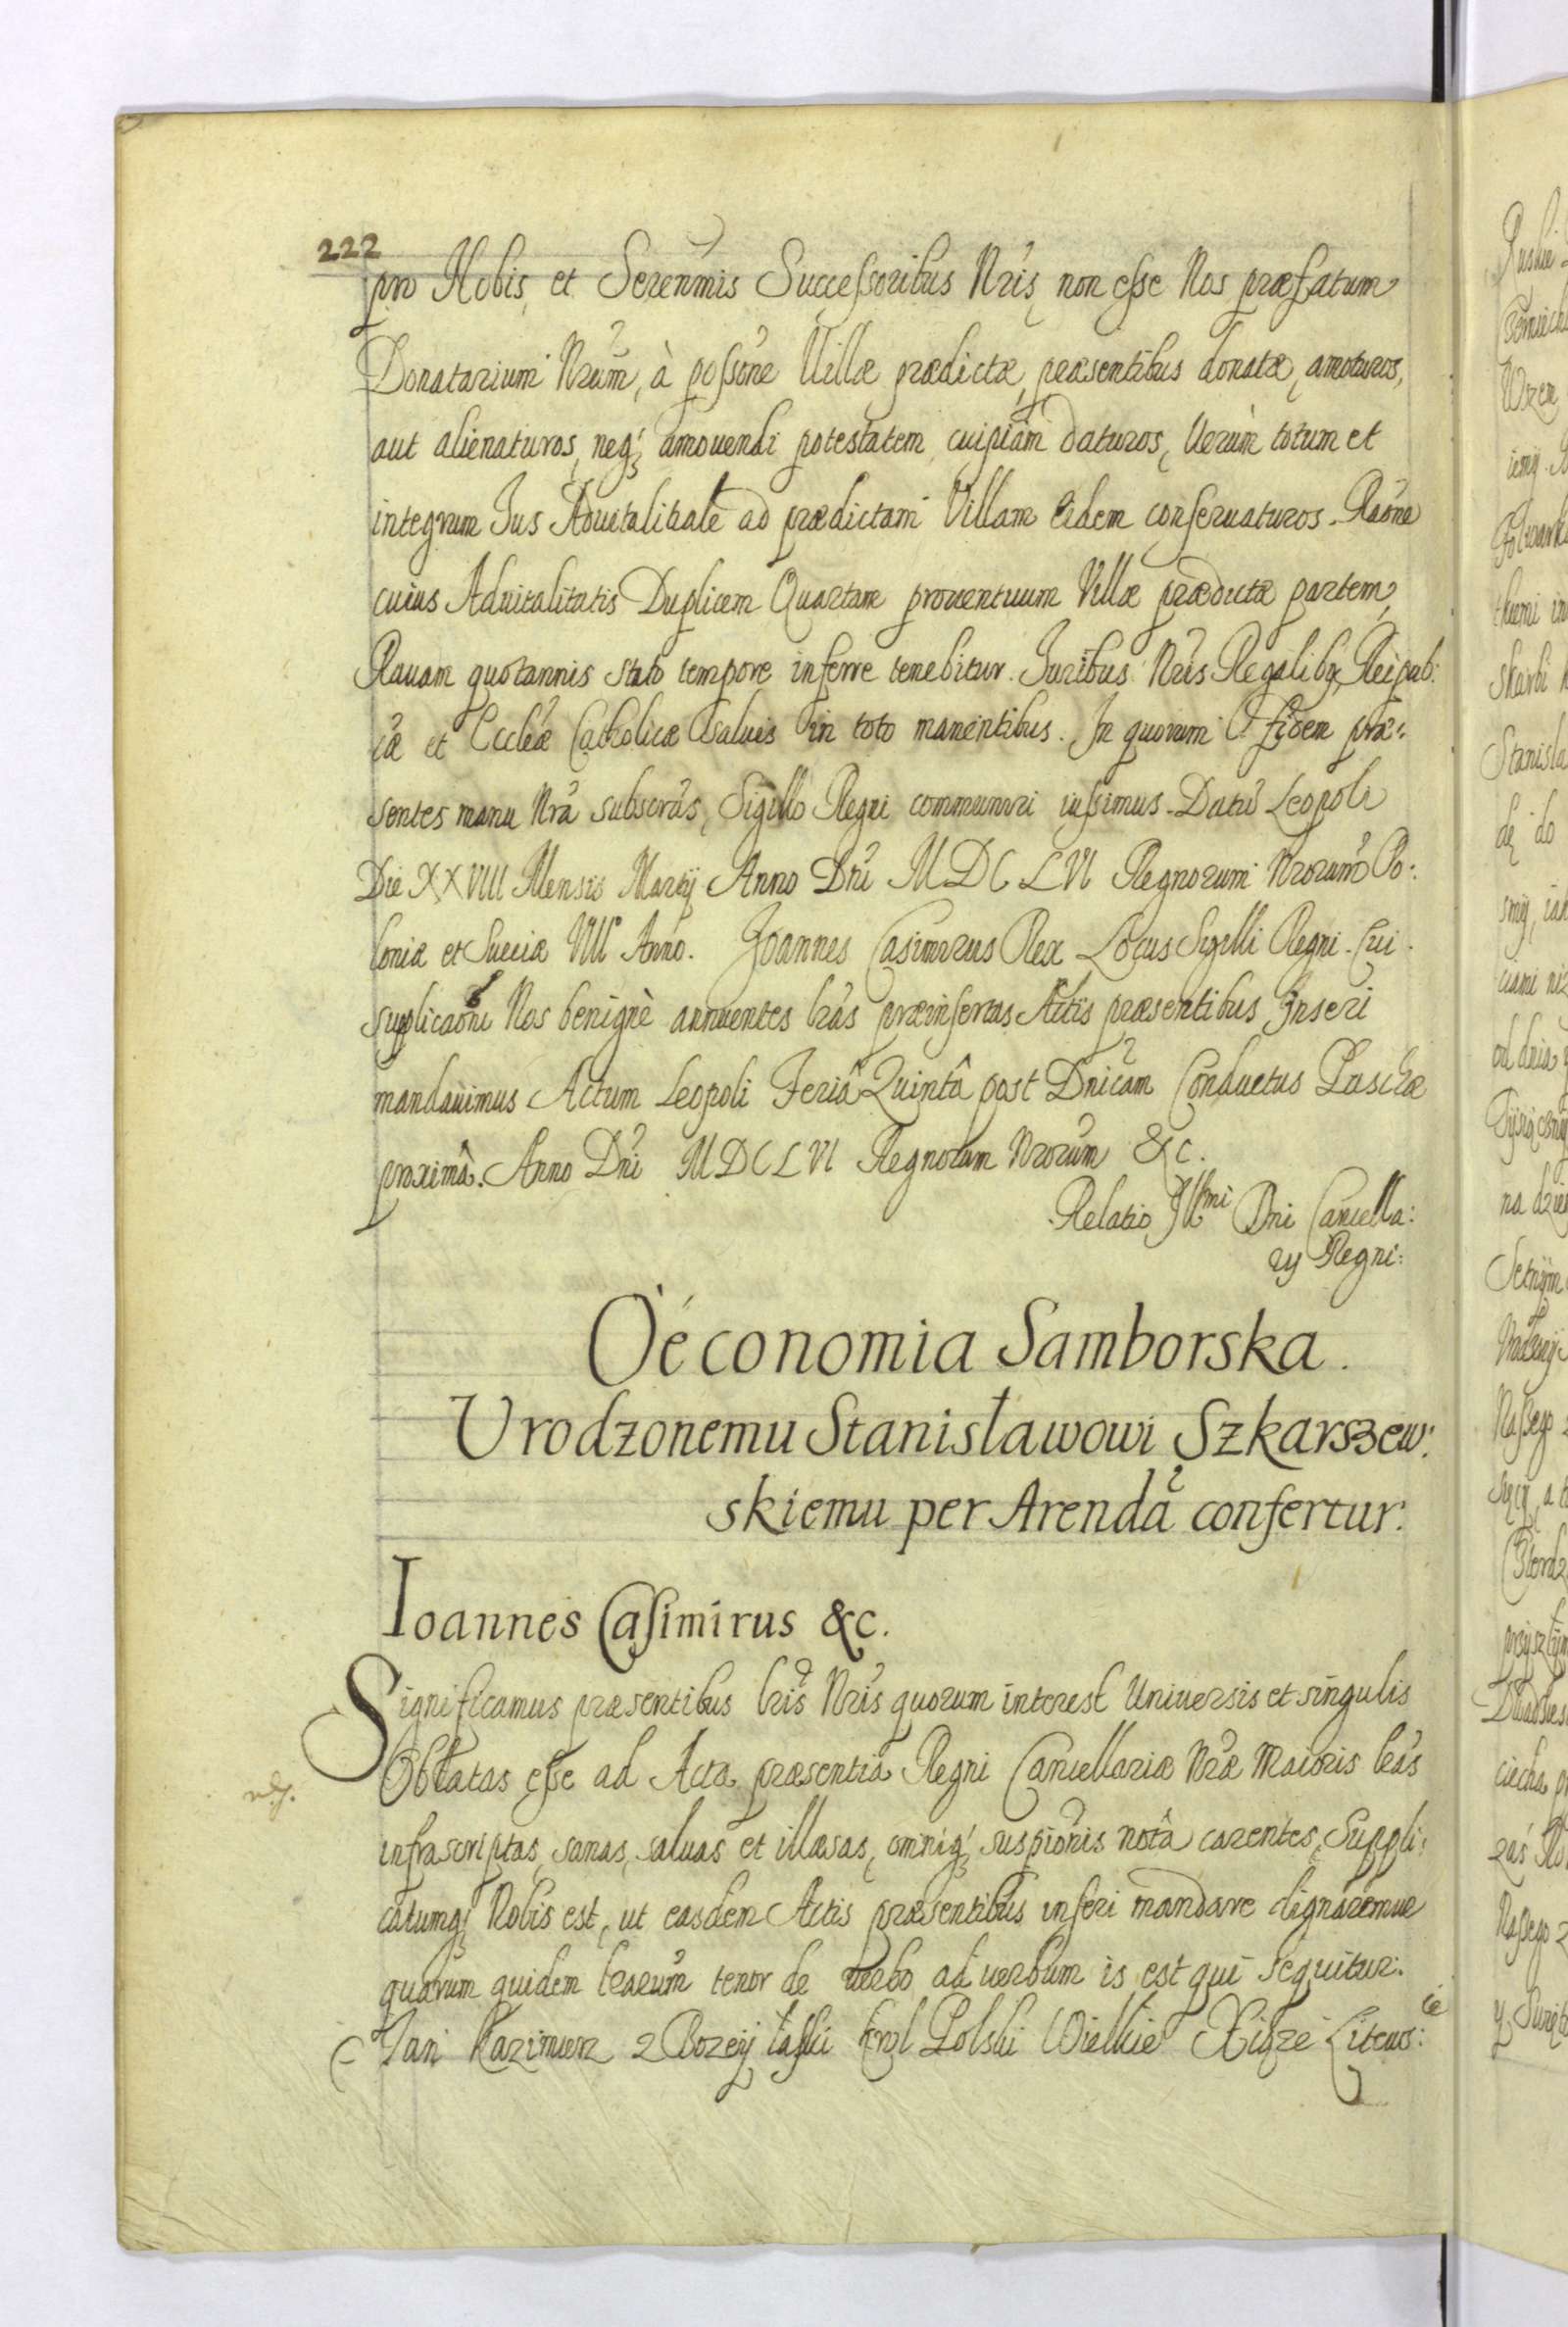 222
pro Nobis et Serenmis Successoribus Nris non esse Nos præfatum
Donatarium Nrum, à possone Villæ prædictæ, præsentibus donatæ, amoturos,
aut alienaturos, neq; amouendi potestatem cuipiam daturos, Verùm totum et
integrum Jus Aduitalitate ad prædictam Villam Eidem conseruaturos. Raone
cuius Aduitalitatis Duplicem Quartam prouentuum Villæ prædictæ partem,
Rauam quotannis stato tempore inferre tenebitur. Juribus Nris Regalibq Reipub:
cæ et Eccleæ Catholicæ saluis in toto manentibus. In quorum fidem præ:
sentes manu Nra subscrãs, Sigillo Regni communiri iussimus. Datu Leopoli
Die XXVIII Mensis Martij Anno Dni MDCLVI Regnorum Nrorum Po:
loniæ et Sueciæ VIII Anno. Joannes Casimirus Rex Locus Sigilli Regni. Cui
supplicaoni Nos benignè annuentes lras præinsertas Actis præsentibus Inseri
mandauimus Actum Leopoli Feriâ Quintâ post Dnicam Conductus Paschæ
proximâ. Anno Dni MDCLVI Regnorum Nrorum &c.
Relatio Illmi Dni Cancella:
rij Regni:
Oéconomia Samborska.
Urodzonemu Stanisławowi Szkarszew:
skiemu per Arendã confertur:
Ioannes Casimirus &c.
Significamus præsentibus lris Nris quorum interest Uniuersis et singulis
Oblatas esse ad Acta præsentia Regni Cancellariæ Nræ Maioris lras
infrascriptas, sanas, saluas et illæsas, omniq; suspionis notâ carentes, Suppli:
catumq; Nobis est, ut easdem Actis præsentibus inseri mandare dignaremur
quarum quidem lrarum tenor de verbo ad uerbum is est qui sequitur.
Jan Kazimierz z Bozey łaski Krol Polski Wielkie Xiąze Litew:
ie